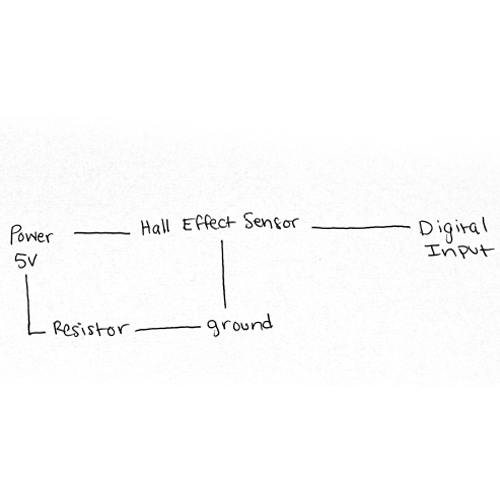 Power
5V
Hall Effect Sensor
Digital
Input
Resistor
ground